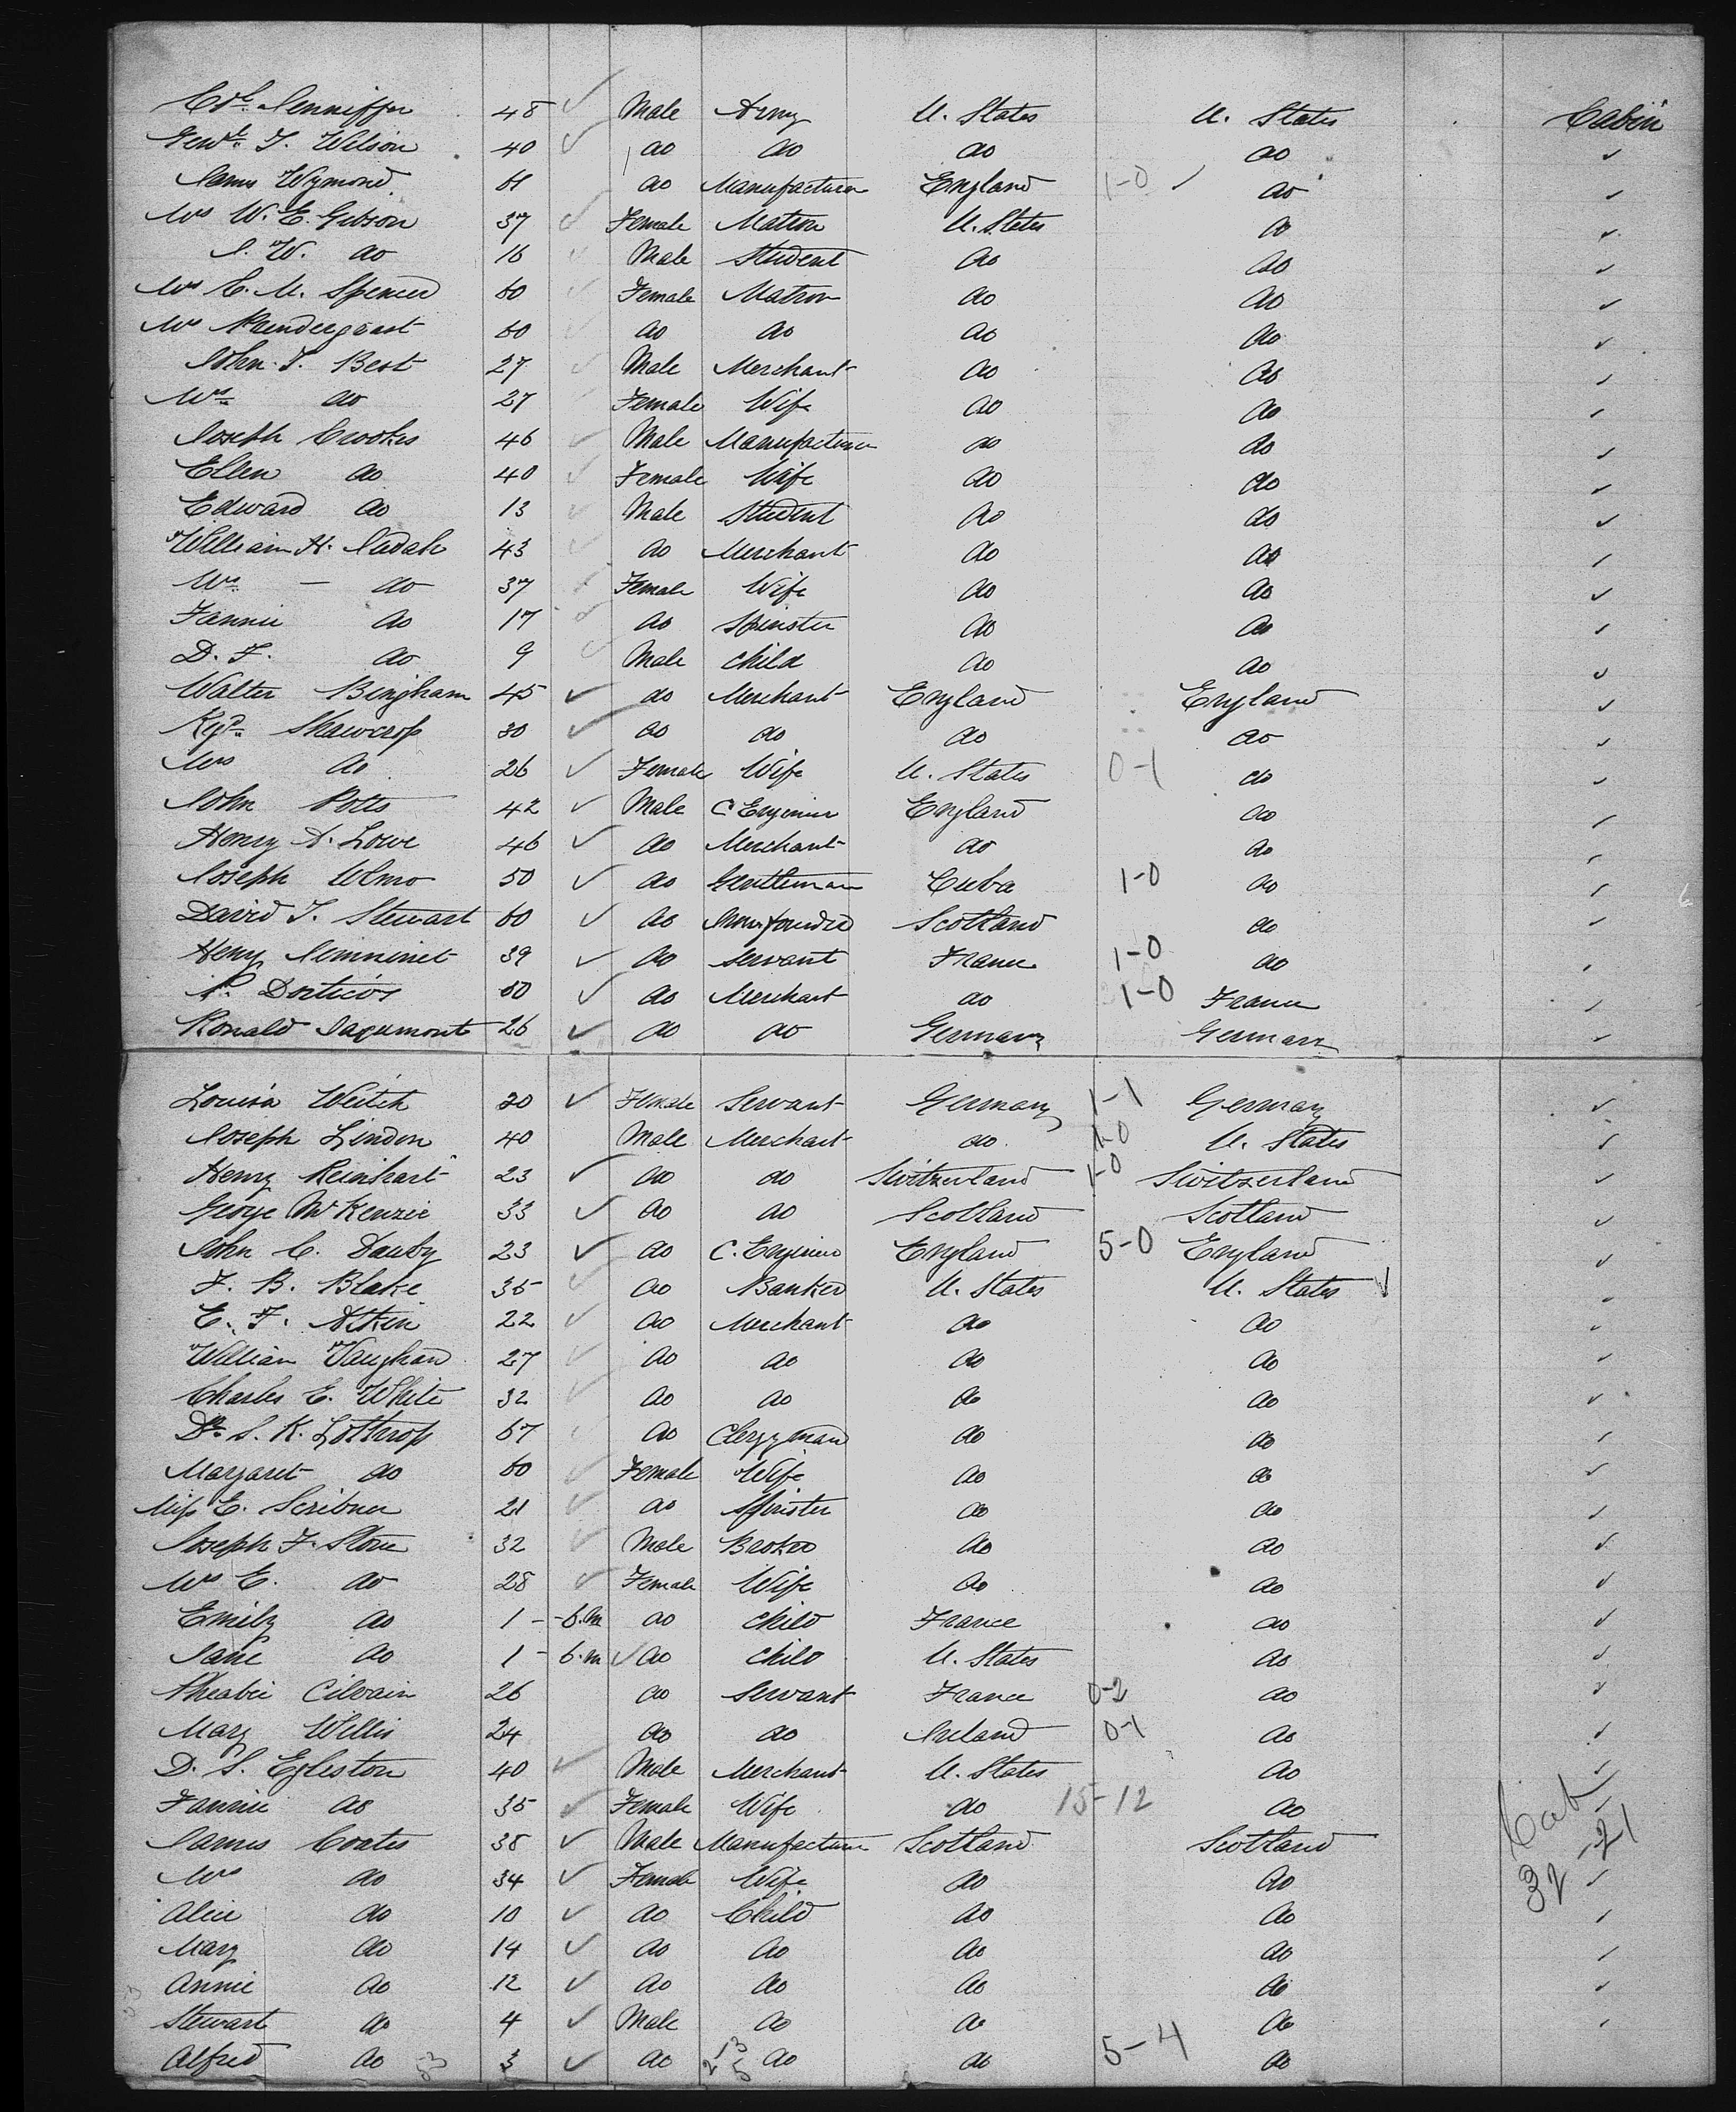 Col. Jenniffer 48 ✓ Male Army U. States U. States Cabin
Genl. T. Wilson 40 ✓ do do do do ✓
James Wymond 61 do Manufacturer England 1-0 ✓ do ✓
Mrs W. E. Gibson 37 ✓ Female Matron U. States do ✓
J. W. do 16 ✓ Male Student do do ✓
Mrs C. M. Spencer 60 ✓ Female Matron do do ✓
Mrs Prendergrast 60 ✓ do do do do ✓
John T. Best 27 ✓ Male Merchant do do ✓
Mrs do 27 Female Wife do do ✓
Joseph Crookes 46 ✓ Male Manufacturer do do ✓
Ellen do 40 ✓ Female Wife do do ✓
Edward do 13 ✓ Male Student do do ✓
William H. Judah 43 ✓ do Merchant do do ✓
Mrs — do 37 ✓ Female Wife do do ✓
Fannie do 17 ✓ do Spinster do do ✓
D. F. do 9 ✓ Male Child do do ✓
Walter Bingham 45 ✓ do Merchant England England ✓
Shawcross 30 ✓ do do do do ✓
Mrs do 26 ✓ Female Wife U. States 0-1 do ✓
John Potts 42 ✓ Male C Engineer England do ✓
Henry A. Lowe 46 ✓ do Merchant do do ✓
Joseph Ulmo 50 ✓ do Gentleman Cuba 1-0 do ✓
David T. Stewart 60 ✓ do Ironfounder Scotland do ✓
Henry 39 ✓ do Servant France 1-0 do ✓
P. Dorticos 60 ✓ do Merchant do 1-0 France ✓
Ronald 26 ✓ do do Germany Germany ✓
Louisa Weitch 30 ✓ Female Servant Germany 1-1 Germany ✓
Joseph Lindon 40 Male Merchant do 1-0 U. States ✓
Henry Reinhart 23 ✓ do do Switzerland 1-0 Switzerland ✓
George McKenzie 33 ✓ do do Scotland Scotland ✓
John C. Danby 23 ✓ do C. Engineer England 5-0 England ✓
F. B. Blake 35 ✓ do Banker U. States U. States ✓
E. F. Atkin 22 ✓ do Merchant do do ✓
William Vaughan 27 ✓ do do do do ✓
Charles E. White 32 ✓ do do do do ✓
Dr. S. K. Lothrop 67 ✓ do Clergyman do do ✓
Margaret do 60 ✓ Female Wife do do ✓
Miss E. Scribner 21 ✓ do Spinster do do ✓
Joseph F. Stone 32 ✓ Male Broker do do ✓
Mrs E. do 28 ✓ Female Wife do do ✓
Emily do 1 - 6.m do Child France do ✓
Jane do 1 - 6.m ✓ do Child U. States do ✓
Cilvain 26 do Servant France 0-2 do ✓
Mary Willis 24 do do Ireland 0-1 do ✓
D. S. Egleston 40 ✓ Male Merchant U. States do ✓
Fannie do 35 ✓ Female Wife do 15-12 do Cab
James Coates 38 ✓ Male Manufacturer Scotland Scotland 32-21
Mrs do 34 ✓ Female Wife do do ✓
Alice do 10 ✓ do Child do do ✓
Mary do 14 ✓ do do do do ✓
Annie do 12 ✓ do do do do ✓
Stewart do 4 ✓ Male do do do ✓
Alfred do 53 3 ✓ do do do 5-4 do